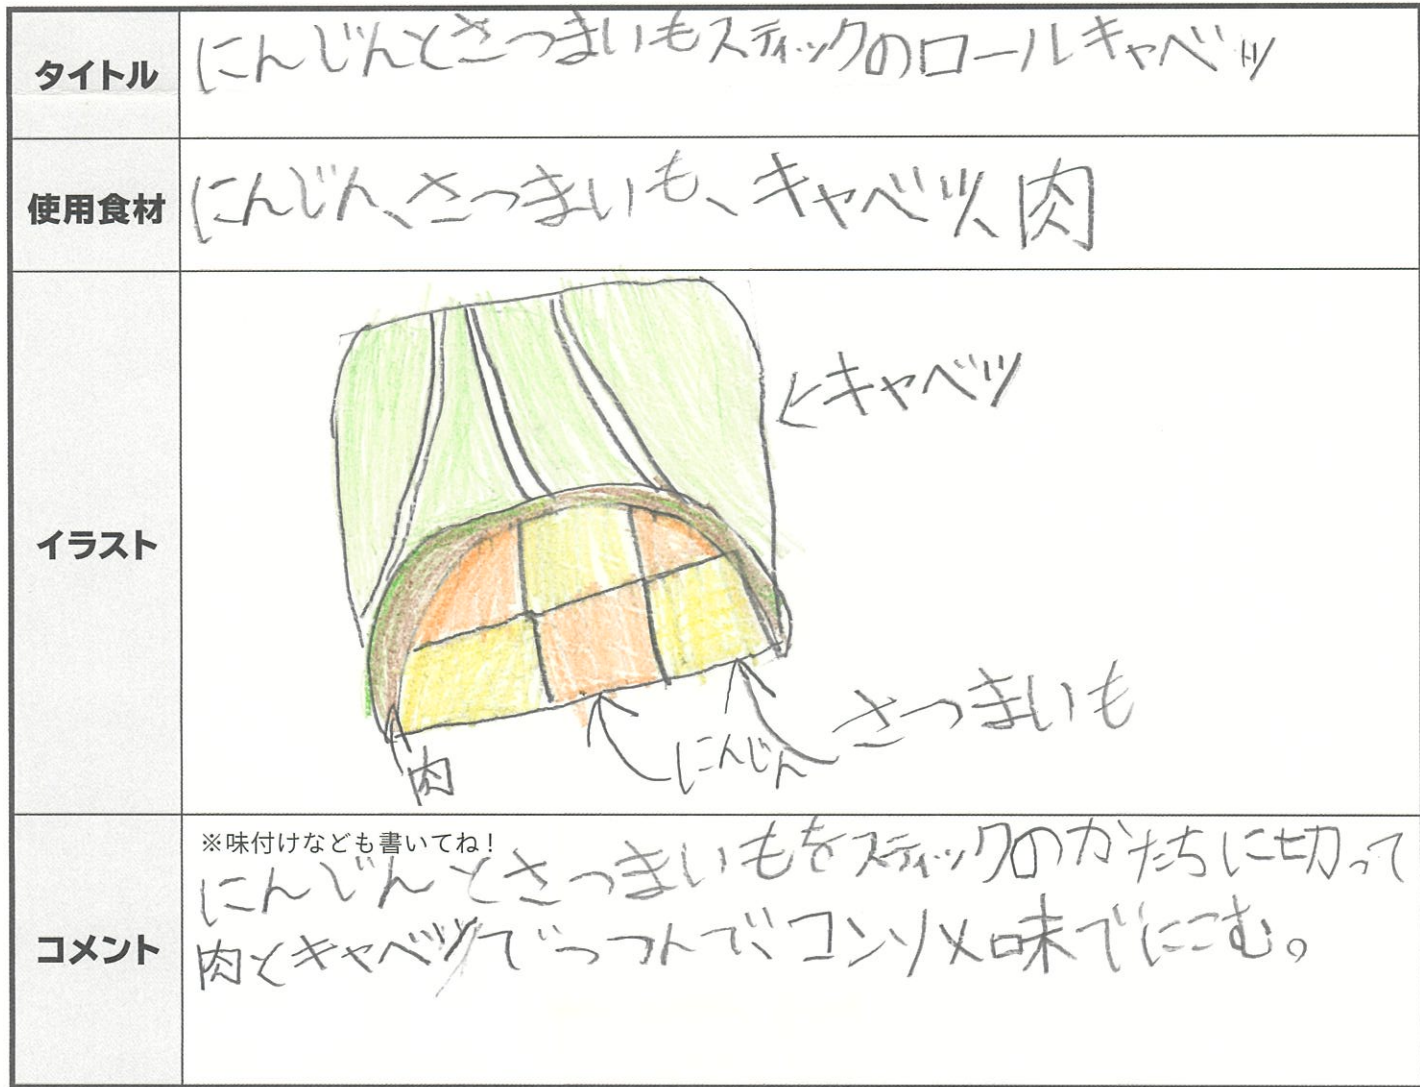 タイトル
にんじんとさつまいもスティックのロールキャベツ
使用食材
にんじん、さつまいも、キャベツ、肉
イラスト
←キャベツ
さつまいも
にんじん
肉
コメント
※味付けなども書いてね!
にんじんとさつまいもをスティックのかたちに切って
肉とキャベツでつつんで、コンソメ味でにこむ。